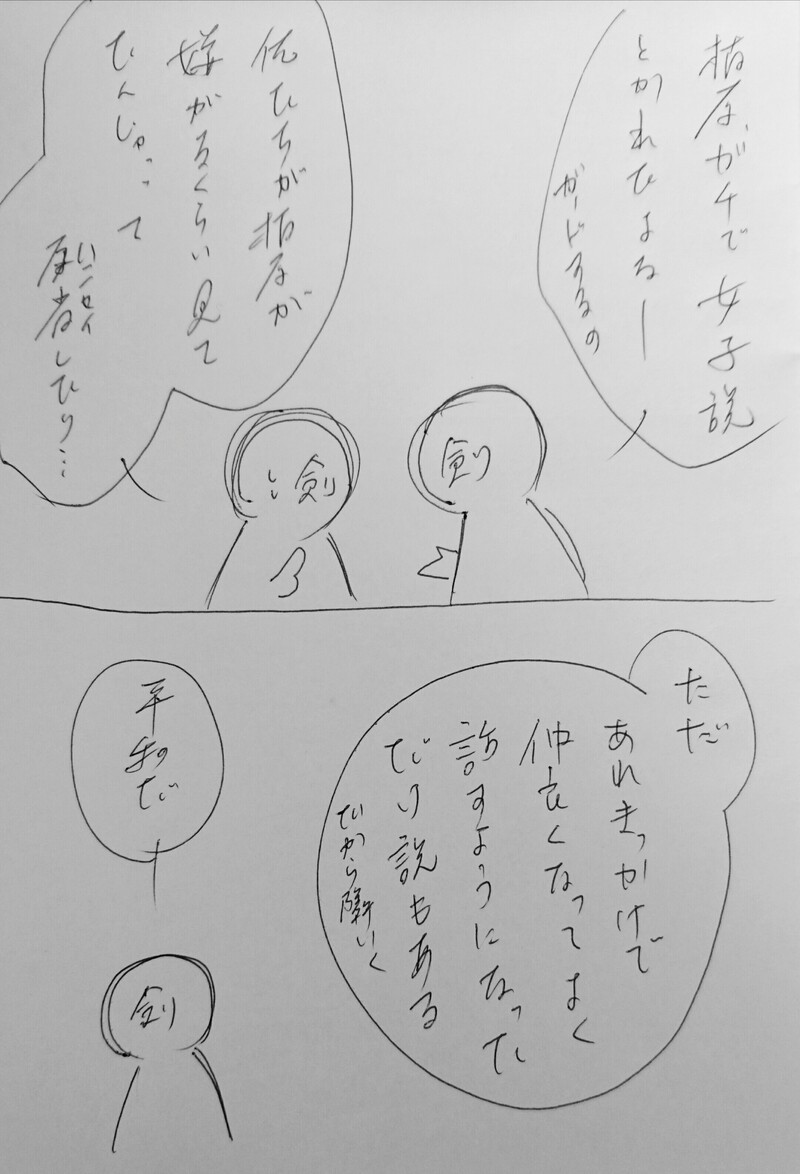 柏原、ガチで女子説
とかれてよるー
ガードするの
俺たちが柏原が
嫌がるくらい見て
たんじゃって
ハンセイ
反省したり…
剣
剣
ただ
あれきっかけで
仲良くなってよく
話すようになった
だけ説もある
だから隣いく
平和だ
剣